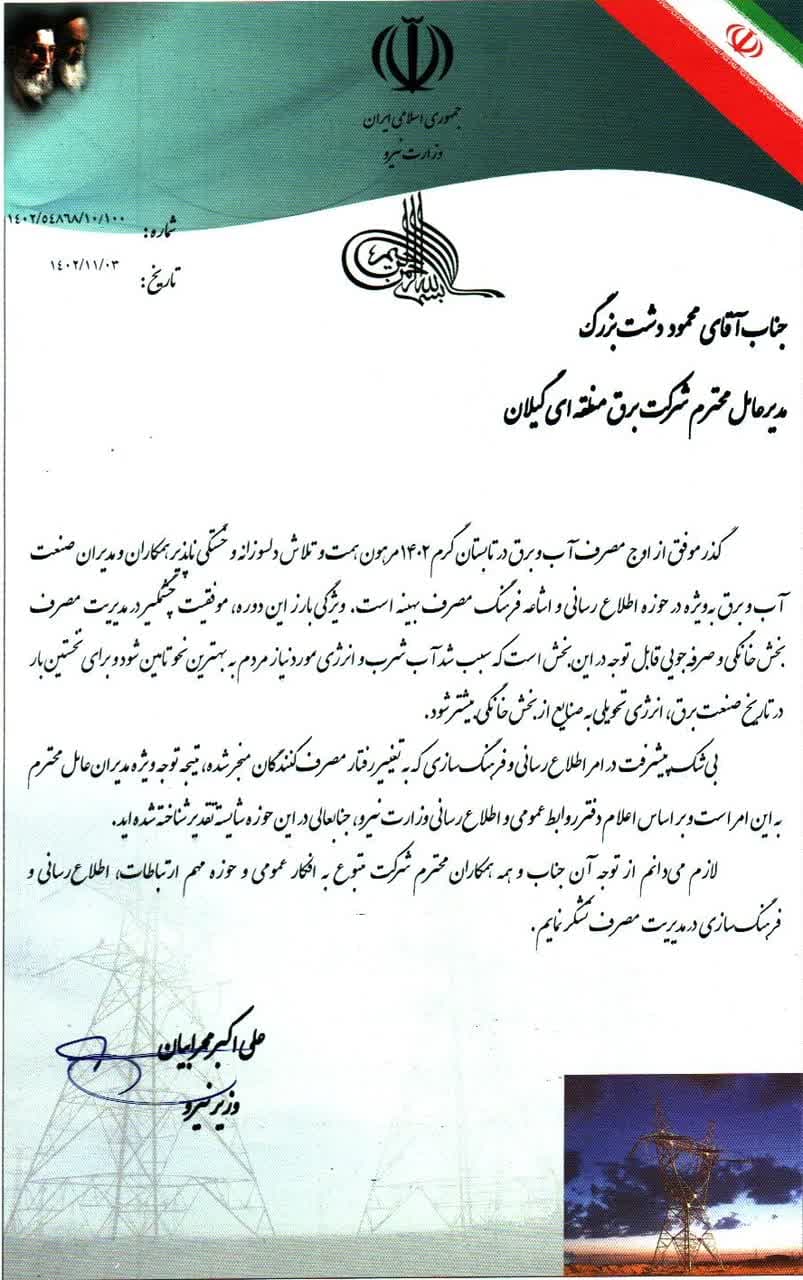 جمهوری اسلامی ایران
وزارت نیرو
شماره: ١٤٠٢/٥٤٨٦٨/١٠/١٠٠
تاریخ: ١٤٠٢/١١/٠٣
بسم الله الرحمن الرحیم
جناب آقای محمود دشت بزرگ
مدیرعامل محترم شرکت برق منطقه ای گیلان
گذر موفق از اوج مصرف آب و برق در تابستان گرم ۱۴۰۲ مرهون همت و تلاش دلسوزانه و خستگی ناپذیر همکاران و مدیران صنعت
آب و برق به‌ویژه در حوزه اطلاع رسانی و اشاعه فرهنگ مصرف بهینه است. ویژگی بارز این دوره، موفقیت چشمگیر در مدیریت مصرف
بخش خانگی و صرفه جویی قابل توجه در این بخش است که سبب شد آب شرب و انرژی مورد نیاز مردم به بهترین نحو تامین شود و برای نخستین بار
در تاریخ صنعت برق، انرژی تحویلی به صنایع از بخش خانگی بیشتر شود.
بی شک پیشرفت در امر اطلاع رسانی و فرهنگ سازی که به تغییر رفتار مصرف کنندگان منجر شده، نتیجه توجه ویژه مدیران عامل محترم
به این امر است و بر اساس اعلام دفتر روابط عمومی و اطلاع رسانی وزارت نیرو، جنابعالی در این حوزه شایسته تقدیر شناخته شده اید.
لازم می‌دانم از توجه آن جناب و همه همکاران محترم شرکت متبوع به افکار عمومی و حوزه مهم ارتباطات، اطلاع رسانی و
فرهنگ سازی در مدیریت مصرف تشکر نمایم.
علی اکبر محرابیان
وزیر نیرو